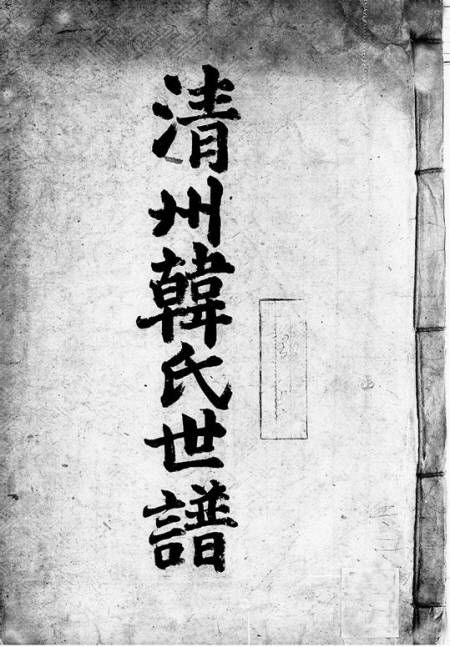 清州韓氏世譜